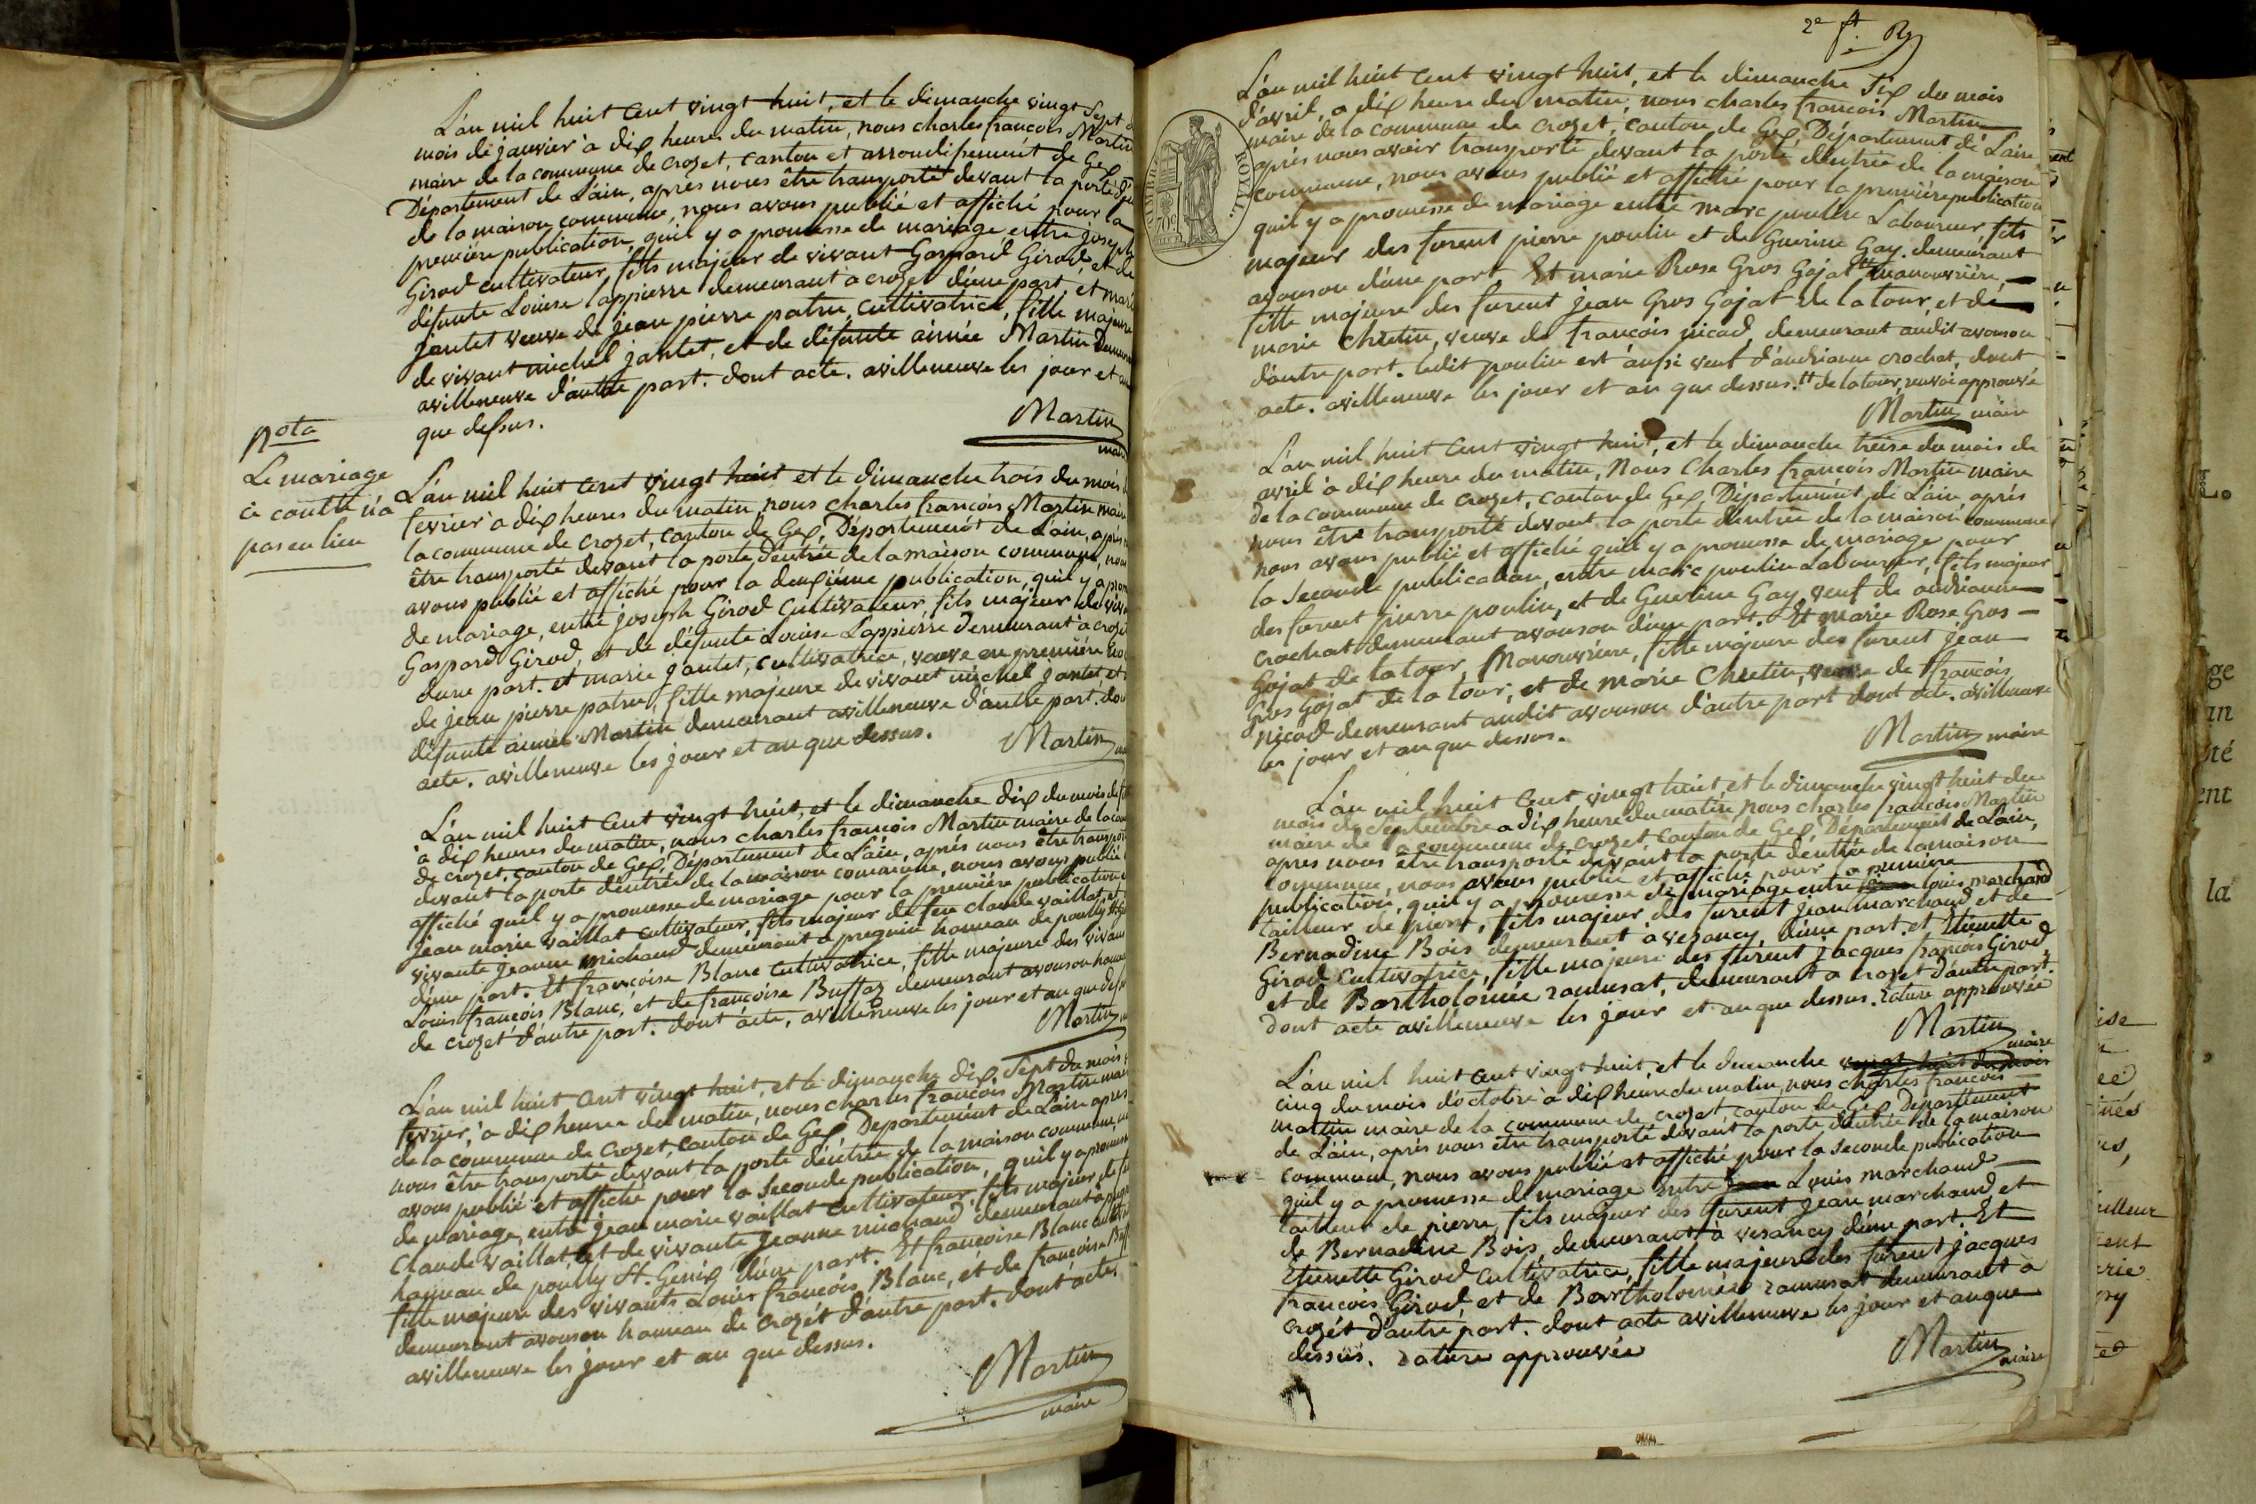 L'an mil huit cent vingt huit, et le dimanche vingt sept
mois de janvier à dix heures du matin, nous charles francois Martin
maire de la commune de crozet, canton et arrondissement de Gex
Département de L'ain, après nous être transporté devant la porte
de la maison commune, nous avons publié et affiché pour la
première publication, quil y a promesse de mariage, entre joseph
Girod cultivateur, fils majeur de vivant Gaspard Girod, et de
défunte Louise Lappierre demeurant a crozet d'une part, et marie
jantet veuve de jean pierre patru, cultivatrice, fille majeure
de vivant michel jantet, et de défunte aimée Martin
avilleneuve d'autre part. dont acte. avilleneuve les jour et an
que dessus.
Martin
nota
Le mariage
ci contre n'a
pas eu lieu
L'an mil huit cent vingt huit et le dimanche trois du mois
fevrier à dix heures du matin, nous charles francois Martin maire
la commune de crozet, canton de Gex, Département de L'ain, après
être transporté devant la porte d'entrée de la maison commune, nous
avons publié et affiché pour la deuxième publication, quil y a
de mariage, entre joseph Girod cultivateur, fils majeur de
Gaspard Girod, et de défunte Louise Lappierre demeurant à crozet
dune part. et marie jantet, cultivatrice, veuve en première
de jean pierre patru, fille majeure de vivant michel jantet, et
défunte aimée Martin demeurant avilleneuve d'autre part.
acte. avilleneuve les jour et an que dessus.
Martin
L'an mil huit cent vingt huit, et le dimanche dix du mois de
à dix heures du matin, nous charles francois Martin maire de la
de crozet, canton de Gex, Département de L'ain, après nous être
devant la porte d'entrée de la maison commune, nous avons publié
affiché quil y a promesse de mariage pour la première publication
jean marie vaillat cultivateur, fils majeur de feu claude vaillat, et
vivante jeanne michaud demeurant a pregnin hameau de pouilly
d'une part. Et francoise Blanc cultivatrice, fille majeure des vivants
Louis francois Blanc, et de francoise Buffaz demeurant avouson
de crozet d'autre part. dont acte, avilleneuve les jour et an que
Martin
L'an mil huit cent vingt huit, et le dimanche dix sept du mois
fevrier, à dix heures du matin, nous charles francois Martin maire
de la commune de Crozet, canton de Gex Département de L'ain après
nous être transporté devant la porte d'entrée de la maison commune,
avons publié et affiché pour la seconde publication, quil y a promesse
de mariage, entre jean marie vaillat cultivateur, fils majeur de
Claude vaillat, et de vivante jeanne michaud demeurant a
hameau de pouilly St. Genix d'une part. Et francoise Blanc
fille majeure des vivants Louis francois Blanc, et de francoise
demeurant avouson hameau de crozet d'autre part. dont acte
avilleneuve les jour et an que dessus.
Martin
maire
2e ft. R
TIMBRE ROYAL.
L'an mil huit cent vingt huit, et le dimanche six du mois
d'avril, a dix heure du matin, nous charles francois Martin
maire de la commune de crozet, canton de Gex, Département de L'ain
après nous avoir transporté devant la porte d'entrée de la maison
commune, nous avons publié et affiché pour la premiere publication
quil y a promesse de mariage entre marc poulin Laboureur, fils
majeur des furent pierre poulin et de Guerine Gay. demeurant
avouson d'une part, Et marie Rose Gros Gojat tt manouvrière,
fille majeure des furent jean Gros Gojat de la tour, et de
marie Chretin, veuve de francois nicod, demeurant audit avouson
d'autre part. ledit poulin est aussi veuf d'andrianne crochat, dont
acte. avilleneuve les jour et an que dessus. tt de la tour, renvoi approuvé
Martin maire
L'an mil huit cent vingt huit, et le dimanche treise du mois de
avril à dix heure du matin, Nous Charles francois Martin maire
de la commune de crozet, canton de Gex, Département de L'ain après
nous être transporté devant la porte dentrée de la maison commune
nous avons publié et affiché quil y a promesse de mariage pour
la seconde publication, entre marc poulin Laboureur, fils majeur
des furent pierre poulin, et de Guerine Gay, veuf de andrianne
crochat demeurant avouson d'une part. Et marie Rose Gros
Gojat de la tour, Manouvriere, fille majeure des furent Jean
Gros Gojat de la tour, et de marie Chretin, veuve de francois
Nicod demeurant audit avouson d'autre part dont acte. avilleneuve
les jour et an que dessus.
Martin maire
L'an mil huit cent vingt huit et le dimanche vingt huit du
mois de Septembre a dix heure du matin nous charles francois Martin
maire de la commune de crozet canton de Gex, Département de L'ain,
apres nous être transporté devant la porte d'entrée de la maison
commune, nous avons publié et affiché pour la premiere
publication, quil y a promesse de mariage entre louis marchand
tailleur de pierre, fils majeur des furent jean marchand et de
Bernadine Bois demeurant à vesancy, d'une part. et Etienette
Girod cultivatrice, fille majeure des furent jacques francois Girod,
et de Bartholomée ramusat, demeurant a crozet d'autre part.
dont acte avilleneuve les jour et an que dessus. rature approuvée
Martin maire
L'an mil huit cent vingt huit, et le dimanche vingt huit du mois
cinq du mois d'octobre à dix heure du matin, nous charles francois
martin maire de la commune de crozet, canton de Gex, Département
de L'ain, après nous être transporté devant la porte d'entrée de la maison
commune, nous avons publié et affiché pour la seconde publication
quil y a promesse de mariage entre jean Louis marchand
tailleur de pierre, fils majeur des furent jean marchand et
de Bernadine Bois, demeurant à vesancy d'une part. Et
Etienette Girod cultivatrice, fille majeure des furent jacques
francois Girod, et de Bartholomée ramusat demeurant a
crozét d'autre part. dont acte avilleneuve les jour et an que
dessus. rature approuvée
Martin maire